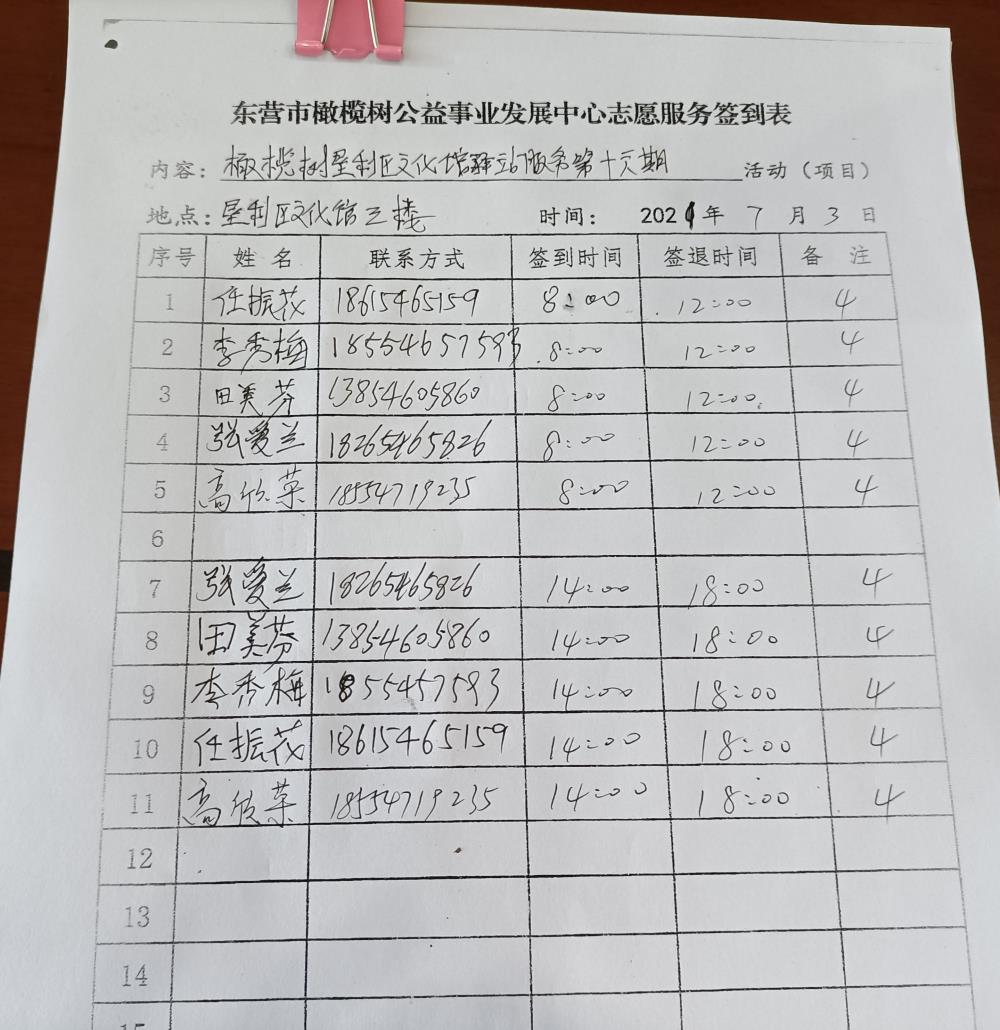 东营市橄榄树公益事业发展中心志愿服务签到表
内容：橄榄树垦利区文化馆驿站服务第十六期 活动（项目）
地点：垦利区文化馆三楼 时间： 2021年 7 月 3 日
序号 姓 名 联系方式 签到时间 签退时间 备 注
1 任振花 18615465159 8:00 12:00 4
2 李秀梅 18554657593 8:00 12:00 4
3 田美芬 13854605860 8:00 12:00 4
4 张爱兰 18265465826 8:00 12:00 4
5 高欣荣 18554719235 8:00 12:00 4
6
7 张爱兰 18265465826 14:00 18:00 4
8 田美芬 13854605860 14:00 18:00 4
9 李秀梅 1855457593 14:00 18:00 4
10 任振花 18615465159 14:00 18:00 4
11 高欣荣 18554719235 14:00 18:00 4
12
13
14
15